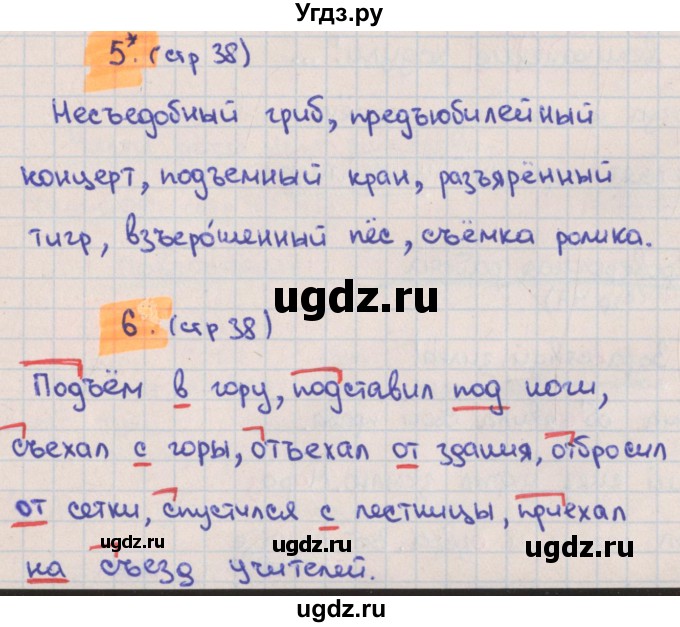 Угдз.ру
5*. (стр 38)
Несъедобный гриб, предъюбилейный
концерт, подъемный кран, разъярённый
тигр, взъеро́шенный пёс, съёмка ролика.
ugdz.ru
6. (стр 38)
Подъём в гору, подставил под ноги,
съехал с горы, отъехал от здания, отбросил
от сетки, спустился с лестницы, приехал
ugdz.ru ugdz.ru ugdz.ru
на съезд учителей.
ugdz.ru